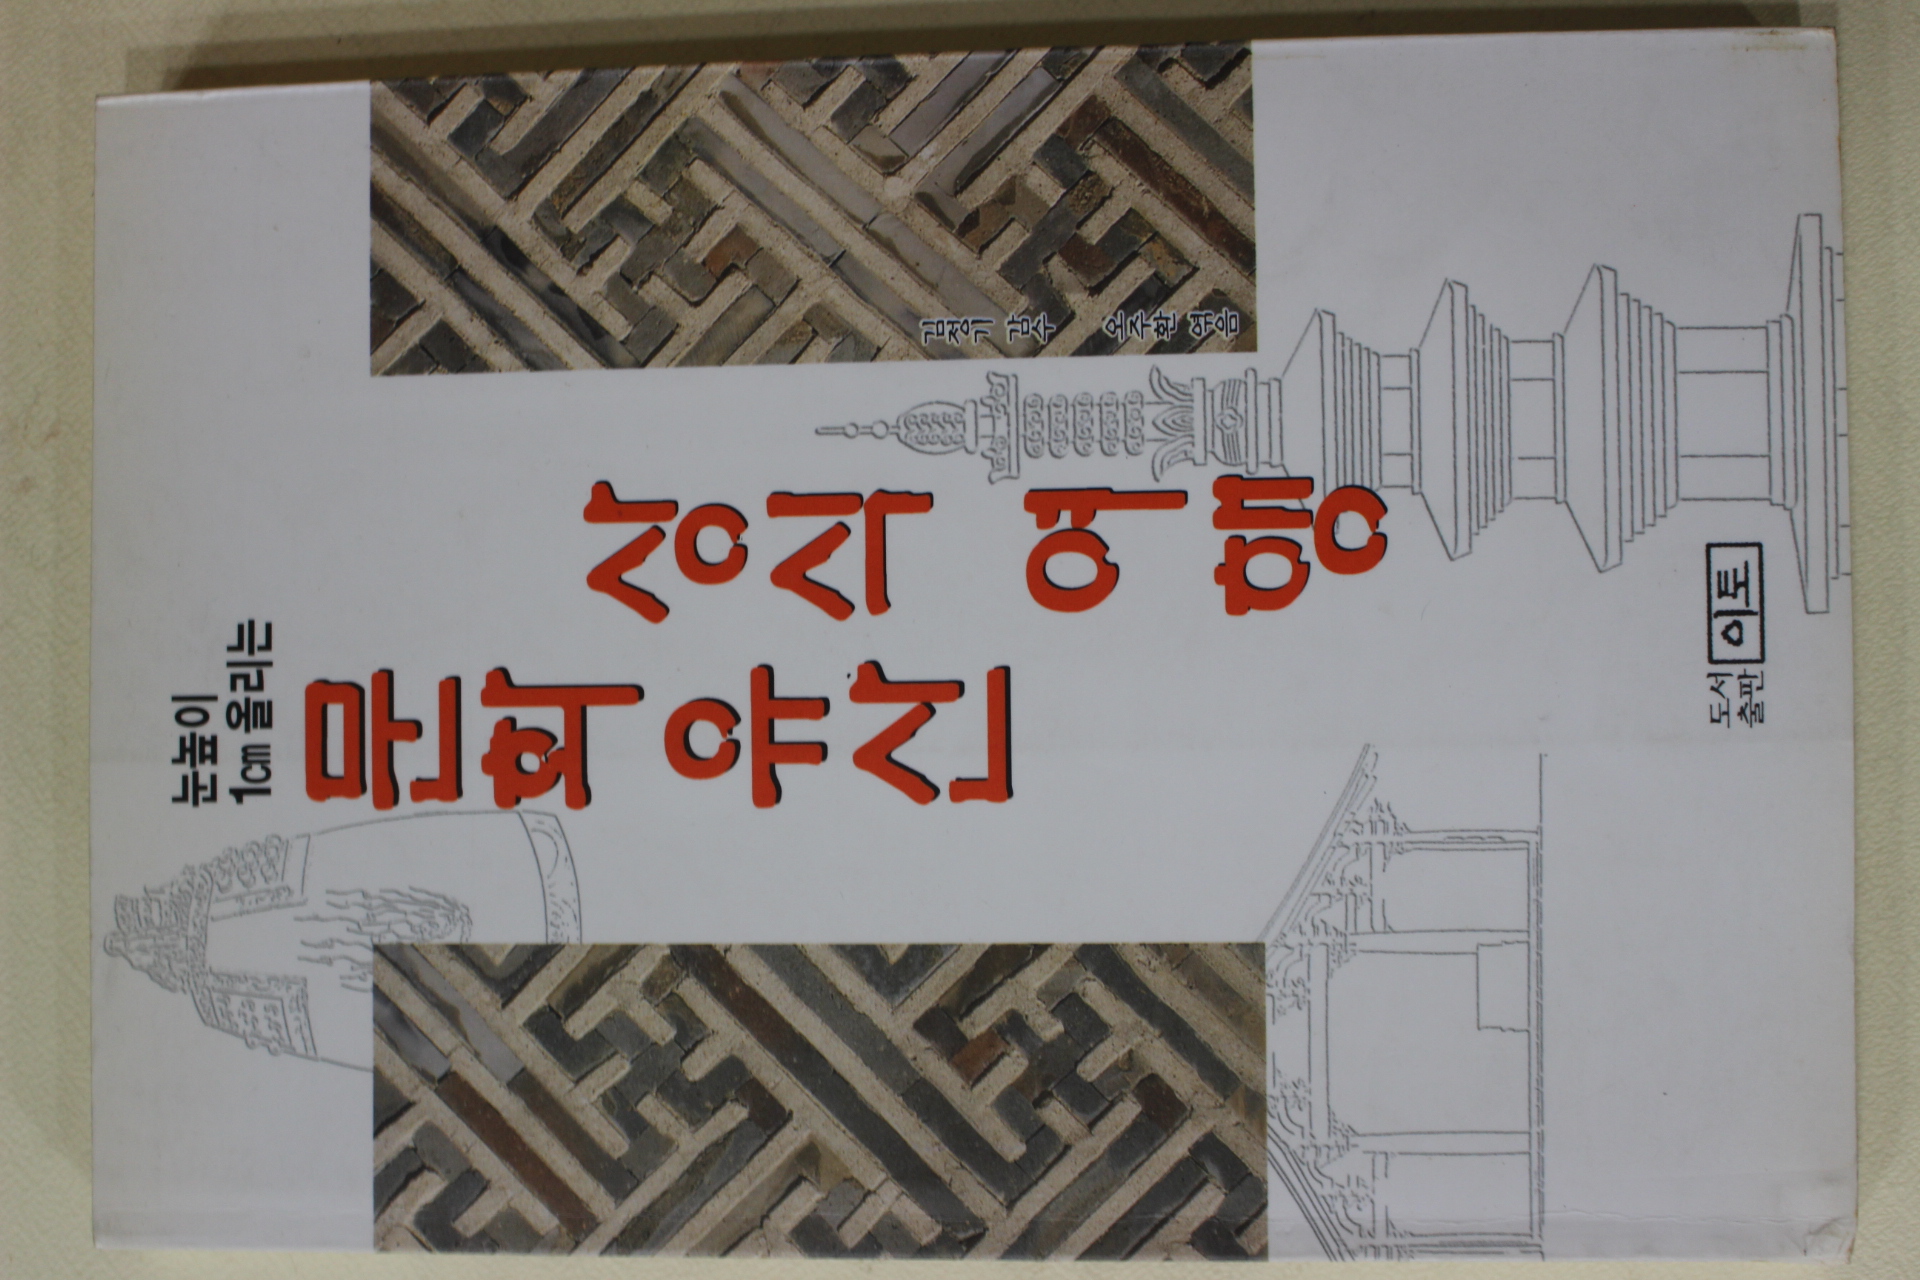 눈높이
1cm 올리는
문화 유산
상식 여행
김정기 감수 오주환 엮음
도서
출판
이토